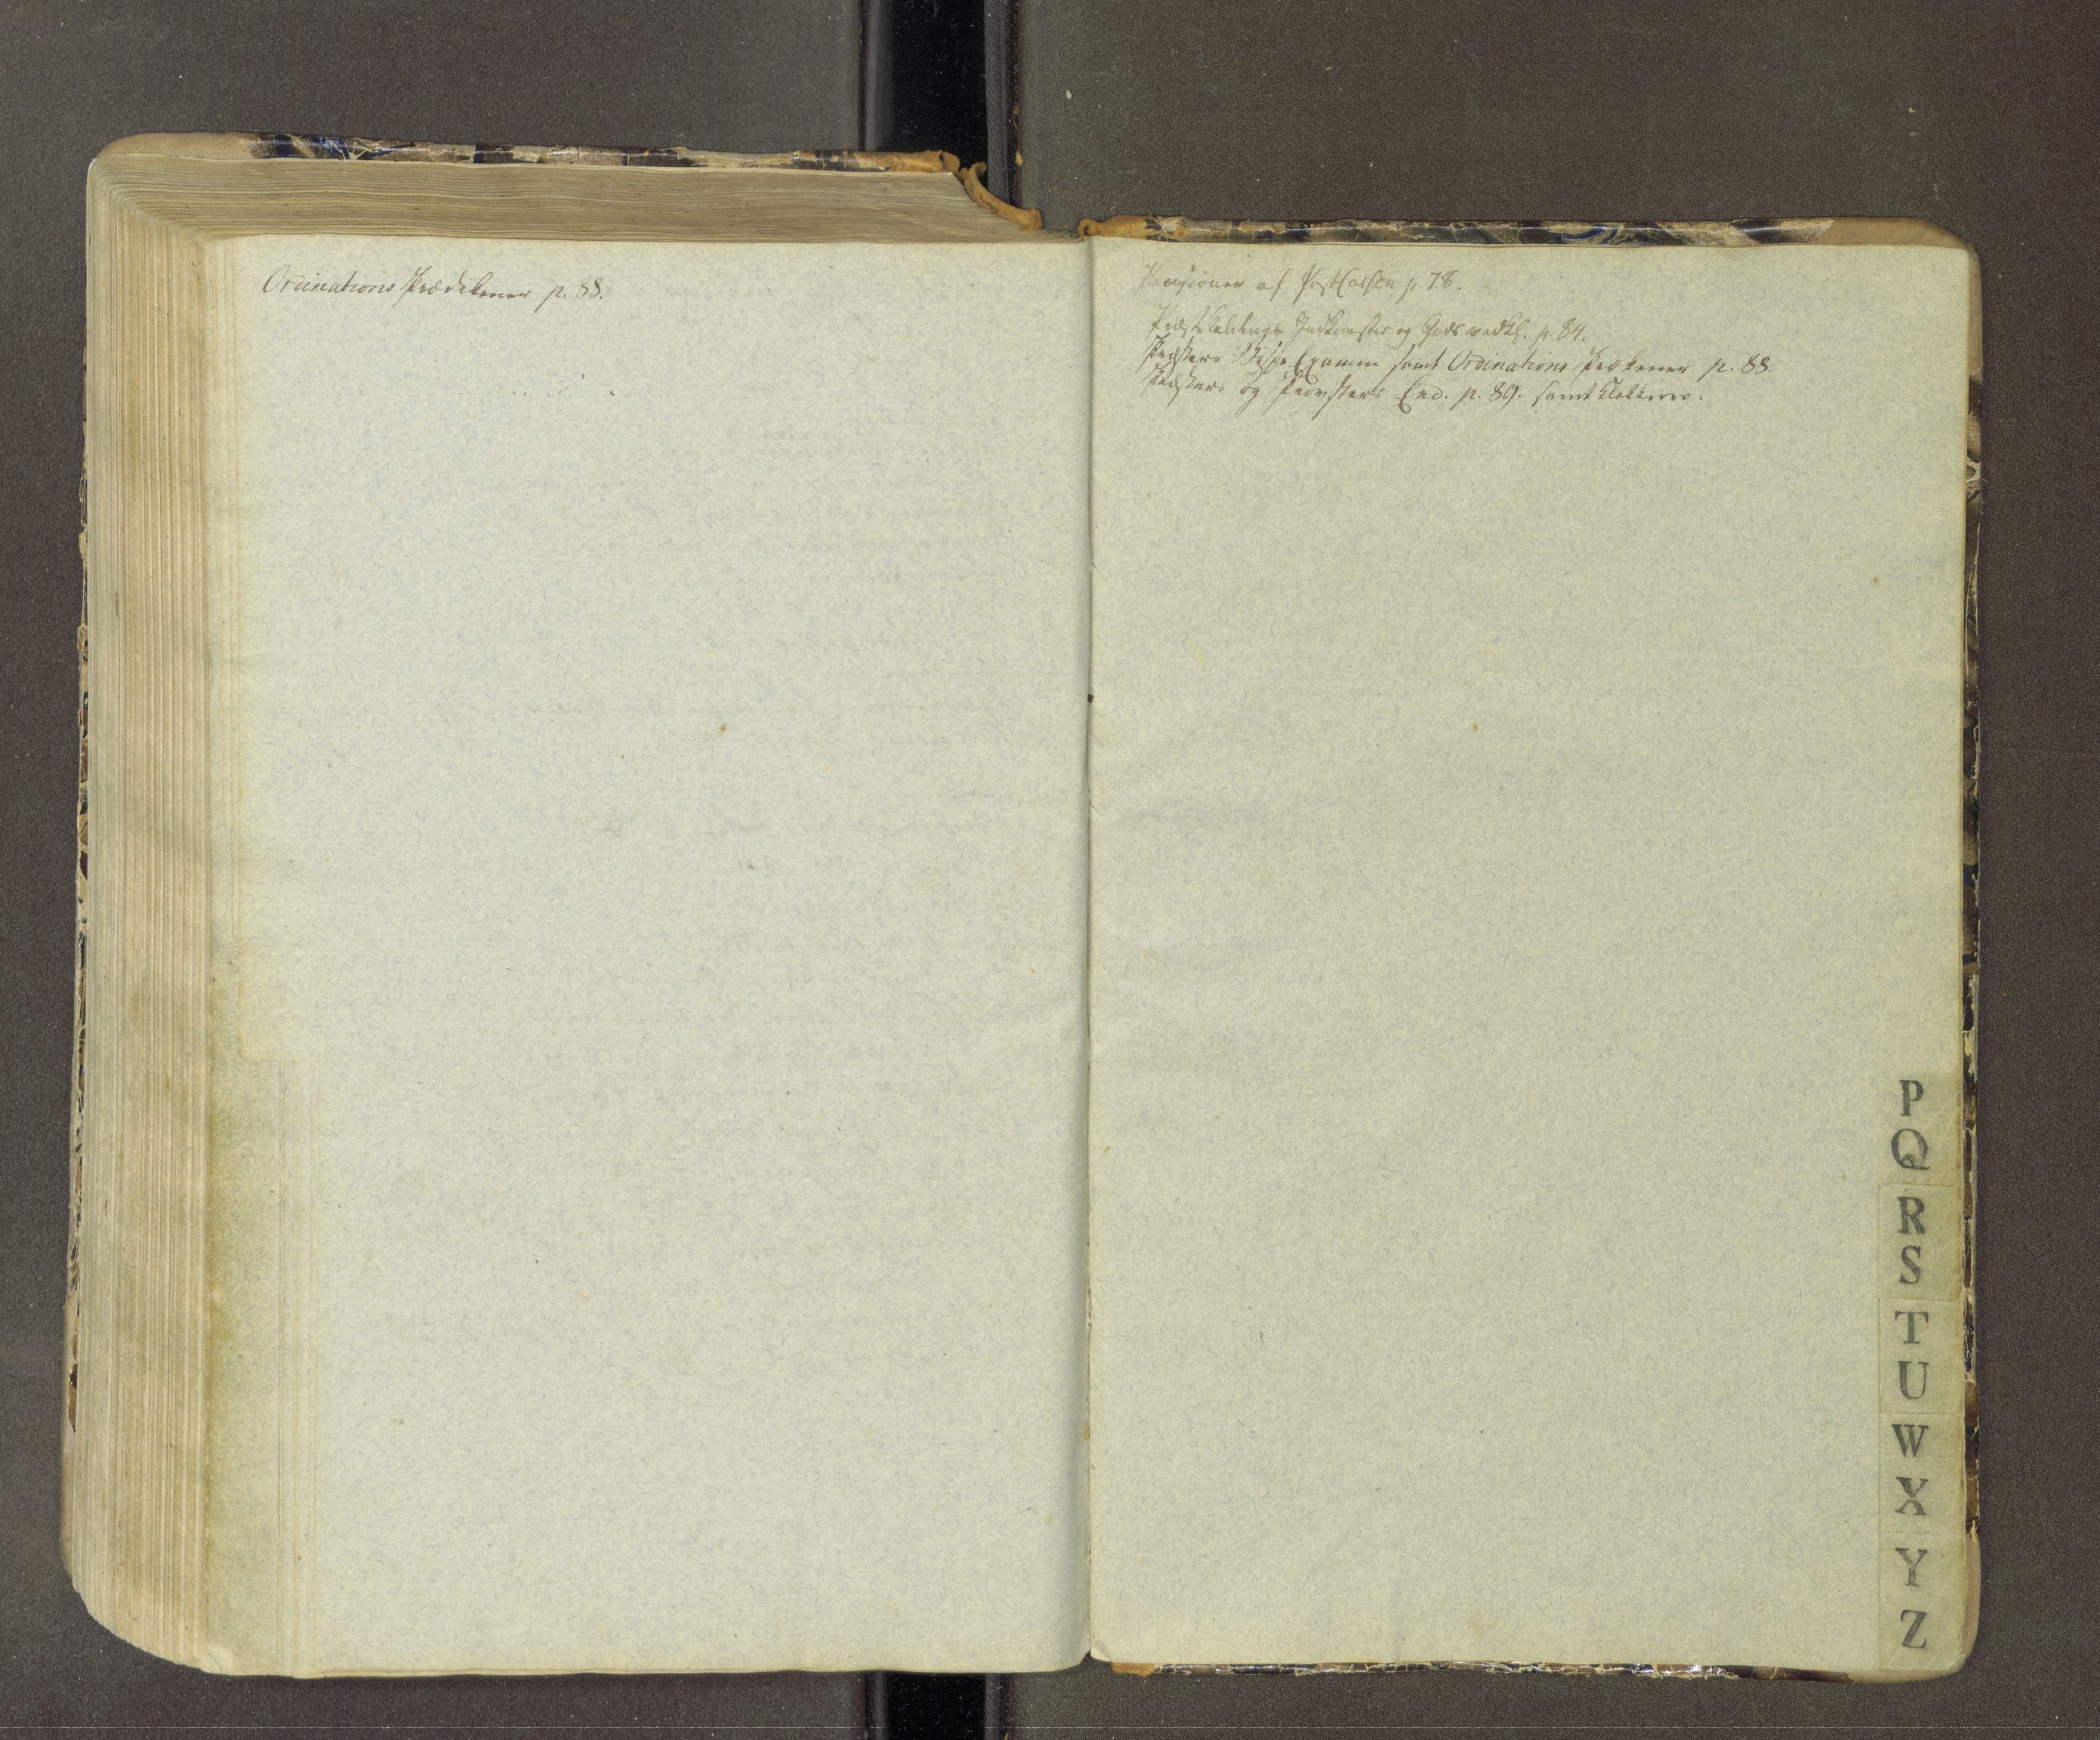 Ordinations Prædikener p. 88.
Pensioner af PostCassen p. 78.
Præstekaldenes Indkomster og Gods vedk. p. 84.
Præsters Bispe-Examen samt Ordinations Prækener p. 88.
Præsters og Provsters Eed. p. 89. samt Klokkeres.
P
Q
R
S
T
U
W
X
Y
Z